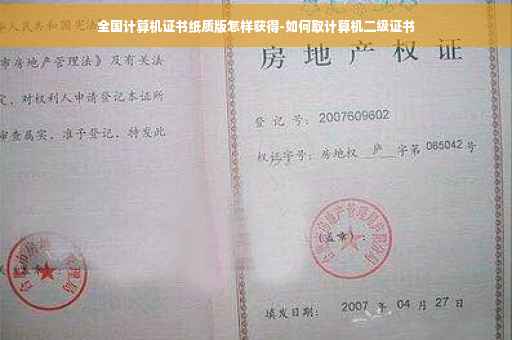 全国计算机证书纸质版怎样获得-如何取计算机二级证书
人民共和国宪法
市房地产管理法》及有关法
定，对权利人申请登记本证所
审查属实，准予登记，特发此
房地产权证
登记号：2007609602
权证字号：房地权 庐 字第 065042 号
（盖章）：
填发日期： 2007 年 04 月 27 日